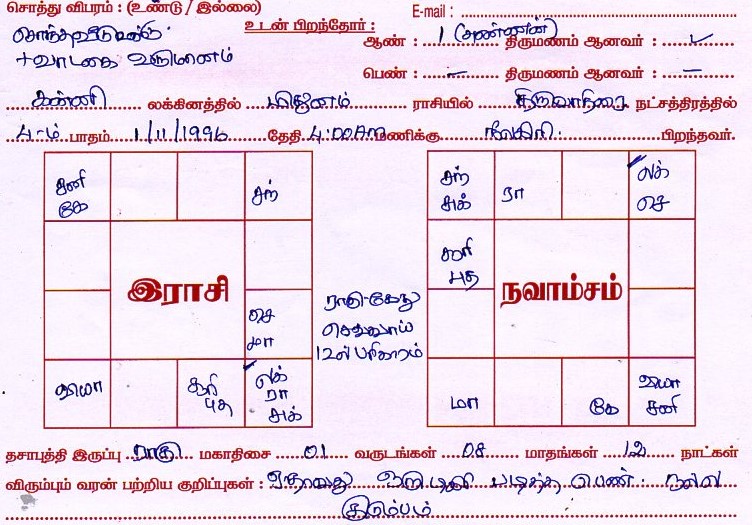 சொத்து விபரம் : (உண்டு / இல்லை) E-mail :
உடன் பிறந்தோர் :
சொந்த வீடு
+ வாடகை வருமானம்
ஆண் : 1 (அண்ணன்) திருமணம் ஆனவர் : ✓
பெண் : – திருமணம் ஆனவர் : –
கன்னி லக்கினத்தில் மிதுனம் ராசியில் திருவாதிரை நட்சத்திரத்தில்
4-ம் பாதம் 1/11/1996 தேதி 4:00AM மணிக்கு பிறந்தவர்.
சனி கே
சந்
இராசி
செ மா
குரு
சூரி புத
லக் ரா சுக்
ராகு-கேது
செவ்வாய்
12ல் பரிகாரம்
சந் சுக்
ரா
லக் செ
சூரி புத
நவாம்சம்
மா
கே
குரு சனி
தசாபுத்தி இருப்பு ராகு மகாதிசை 01 வருடங்கள் 08 மாதங்கள் 12 நாட்கள்
விரும்பும் வரன் பற்றிய குறிப்புகள் : ஏதாவது ஒரு டிகிரி படித்த பெண். நல்ல
குடும்பம்